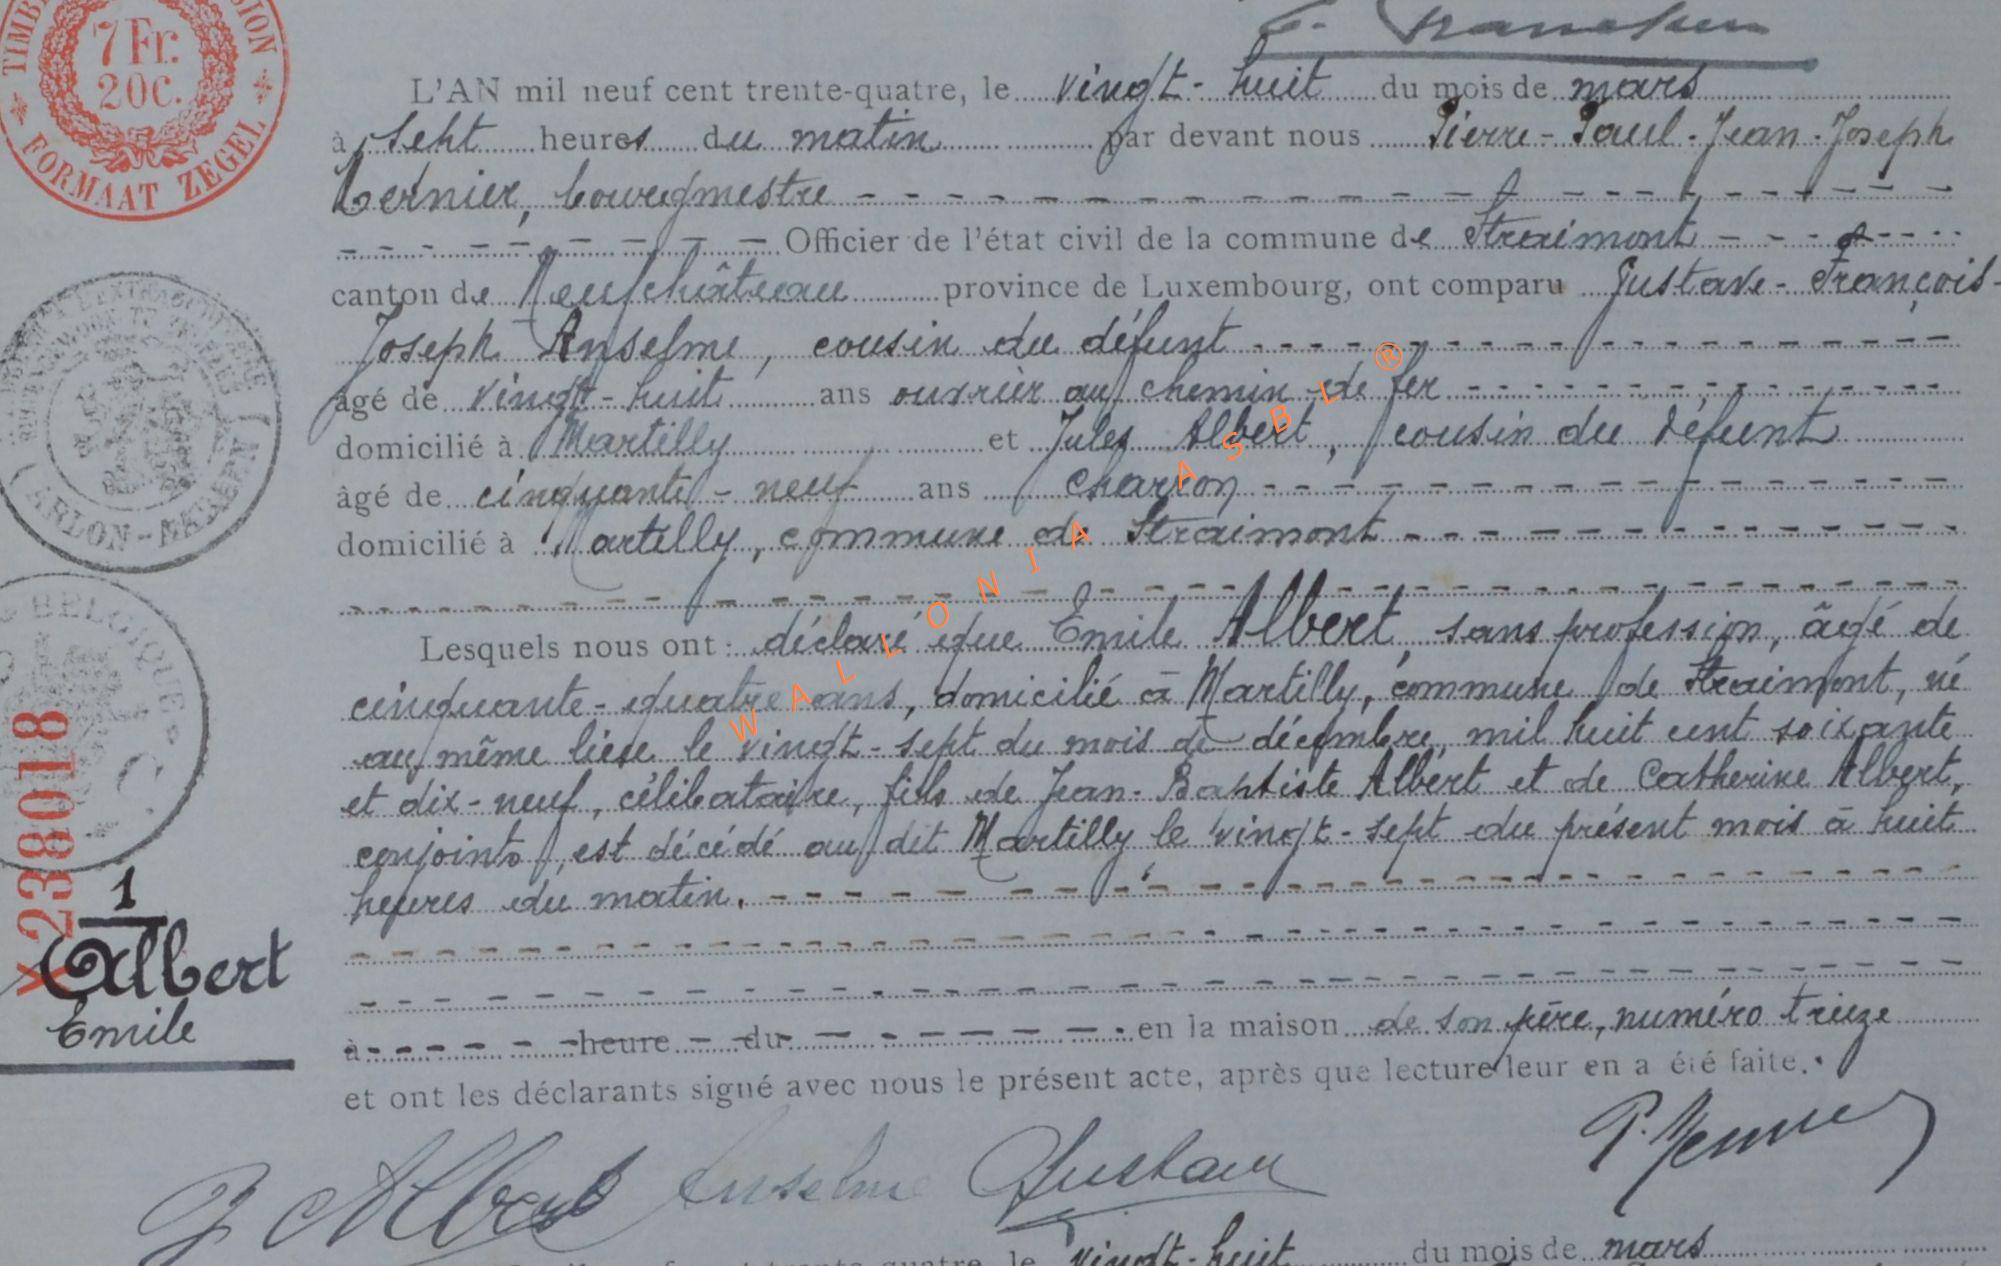 TIMB SION
7 Fr.
20C.
FORMAAT ZEGEL
L'AN mil neuf cent trente-quatre, le vingt-huit du mois de mars
à sept heures du matin par devant nous Pierre-Paul-Jean-Joseph
bourgmestre
Officier de l'état civil de la commune de Straimont
canton de Neufchâteau province de Luxembourg, ont comparu Gustave-François-
Joseph Anselme, cousin du défunt
âgé de vingt-huit ans ouvrier au chemin de fer
domicilié à Martilly et Jules Albert, cousin du défunt
âgé de cinquante-neuf ans charron
domicilié à Martilly, commune de Straimont
Lesquels nous ont: déclaré que Emile Albert, sans profession, âgé de
cinquante-quatre ans, domicilié à Martilly, commune de Straimont, né
au même lieu le vingt-sept du mois de décembre, mil huit cent soixante
et dix-neuf, célibataire, fils de Jean-Baptiste Albert et de Catherine Albert,
conjoints, est décédé au dit Martilly le vingt-sept du présent mois à huit
heures du matin.
à heure du en la maison de son père, numéro treize
et ont les déclarants signé avec nous le présent acte, après que lecture leur en a été faite.
J Albert Anselme Gustave
vingt-huit du mois de mars
ARLON
BELGIQUE
X238018
1
Albert
Emile
WALLONIA ASBL ®